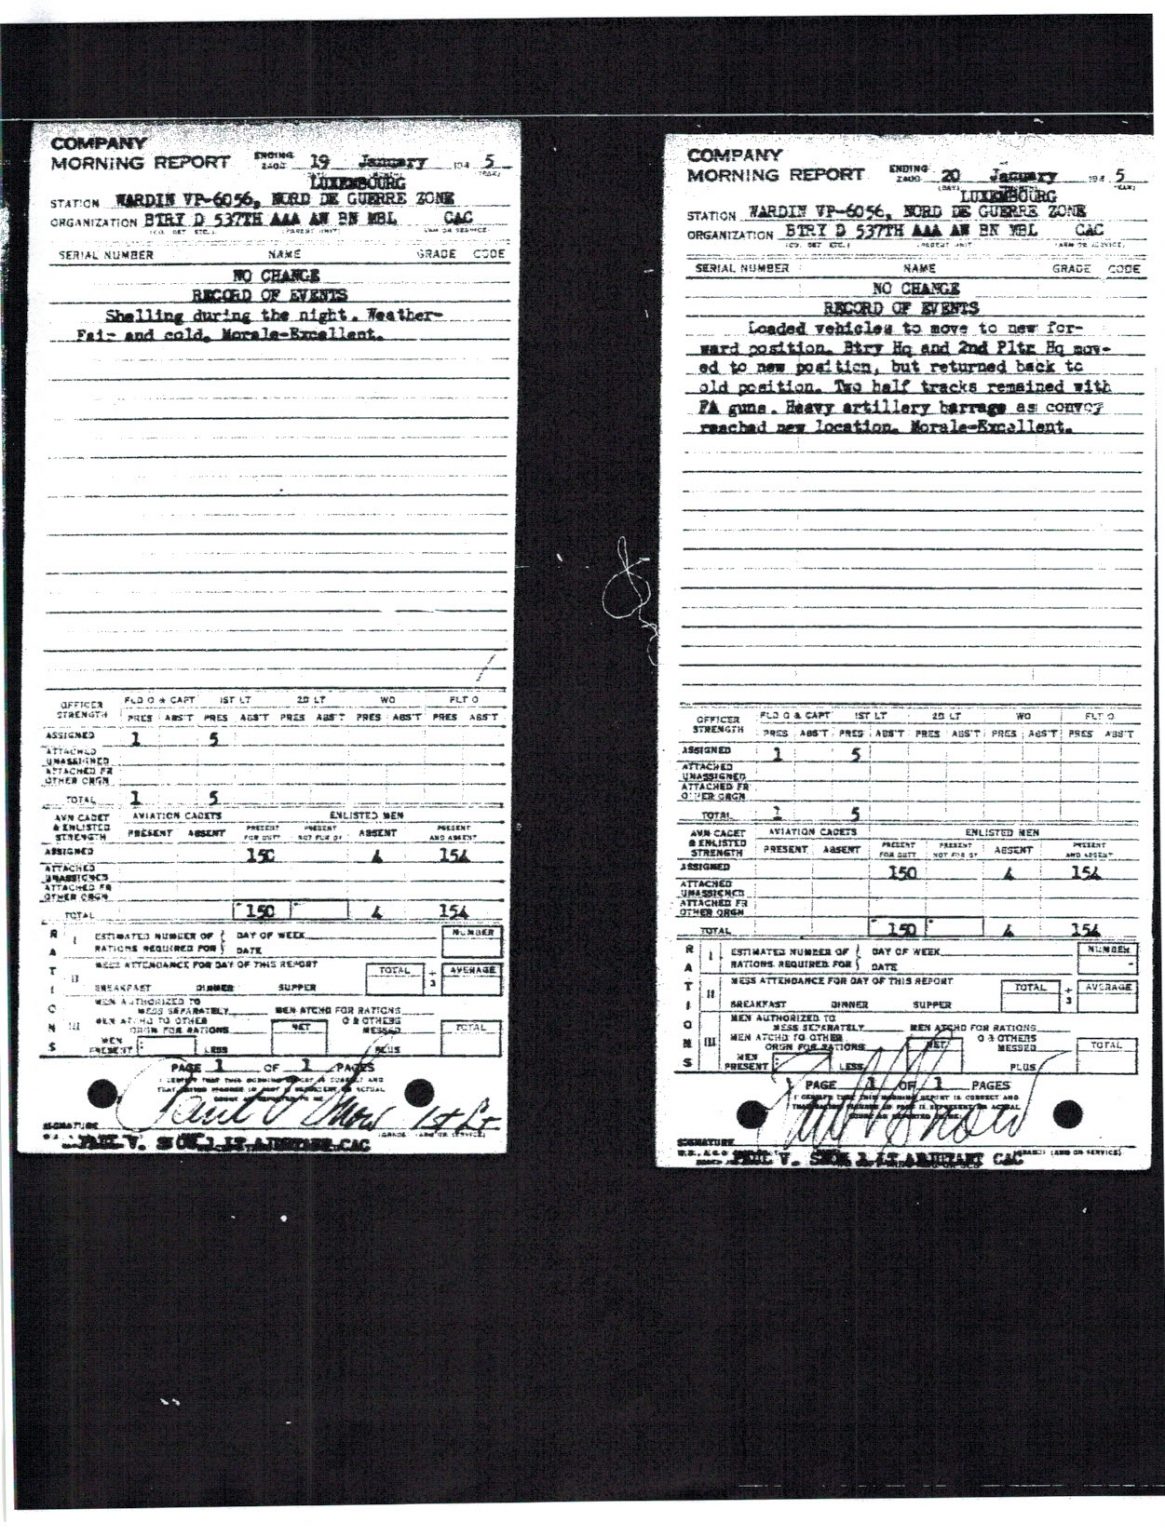 COMPANY
MORNING REPORT ENDING 2400 19 January 194 5
LUXEMBOURG
STATION WARDIN VP-6056, NORD DE GUERRE ZONE
ORGANIZATION BTRY D 537TH AAA AW BN MBL CAC
SERIAL NUMBER NAME GRADE CODE
NO CHANGE
RECORD OF EVENTS
Shelling during the night. Weather-
Fair and cold. Morale-Excellent.
OFFICER STRENGTH FLD O & CAPT 1ST LT 2D LT WO FLT O
PRES ABS'T PRES ABS'T PRES ABS'T PRES ABS'T PRES ABS'T
ASSIGNED 1 5
ATTACHED UNASSIGNED
ATTACHED FR OTHER ORGN
TOTAL 1 5
AVN CADET & ENLISTED STRENGTH AVIATION CADETS ENLISTED MEN
PRESENT ABSENT PRESENT FOR DUTY PRESENT NOT FOR DY ABSENT PRESENT AND ABSENT
ASSIGNED 150 4 154
ATTACHED UNASSIGNED
ATTACHED FR OTHER ORGN
TOTAL 150 4 154
RATIONS
I ESTIMATED NUMBER OF RATIONS REQUIRED FOR DAY OF WEEK DATE NUMBER
II MESS ATTENDANCE FOR DAY OF THIS REPORT TOTAL ÷ 3 AVERAGE
BREAKFAST DINNER SUPPER
III MEN AUTHORIZED TO MESS SEPARATELY MEN ATCHD FOR RATIONS
MEN ATCHD TO OTHER ORGN FOR RATIONS NET O & OTHERS MESSED TOTAL
MEN PRESENT LESS PLUS
PAGE 1 OF 1 PAGES
I CERTIFY THAT THIS MORNING REPORT IS CORRECT AND
Paul V Snow 1st Lt
SIGNATURE
PAUL V. SNOW 1 LT ADJUTANT CAC
COMPANY
MORNING REPORT ENDING 2400 20 January 194 5
LUXEMBOURG
STATION WARDIN VP-6056, NORD DE GUERRE ZONE
ORGANIZATION BTRY D 537TH AAA AW BN MBL CAC
SERIAL NUMBER NAME GRADE CODE
NO CHANGE
RECORD OF EVENTS
Loaded vehicles to move to new for-
ward position. Btry Hq and 2nd Pltn Hq mov-
ed to new position, but returned back to
old position. Two half tracks remained with
FA guns. Heavy artillery barrage as convoy
reached new location. Morale-Excellent.
OFFICER STRENGTH FLD O & CAPT 1ST LT 2D LT WO FLT O
PRES ABS'T PRES ABS'T PRES ABS'T PRES ABS'T PRES ABS'T
ASSIGNED 1 5
ATTACHED UNASSIGNED
ATTACHED FR OTHER ORGN
TOTAL 1 5
AVN CADET & ENLISTED STRENGTH AVIATION CADETS ENLISTED MEN
PRESENT ABSENT PRESENT FOR DUTY PRESENT NOT FOR DY ABSENT PRESENT AND ABSENT
ASSIGNED 150 4 154
ATTACHED UNASSIGNED
ATTACHED FR OTHER ORGN
TOTAL 150 4 154
RATIONS
I ESTIMATED NUMBER OF RATIONS REQUIRED FOR DAY OF WEEK DATE NUMBER
II MESS ATTENDANCE FOR DAY OF THIS REPORT TOTAL ÷ 3 AVERAGE
BREAKFAST DINNER SUPPER
III MEN AUTHORIZED TO MESS SEPARATELY MEN ATCHD FOR RATIONS
MEN ATCHD TO OTHER ORGN FOR RATIONS NET O & OTHERS MESSED TOTAL
MEN PRESENT LESS PLUS
PAGE 1 OF 1 PAGES
I CERTIFY THAT THIS MORNING REPORT IS CORRECT AND
Paul V Snow
SIGNATURE
PAUL V. SNOW 1 LT ADJUTANT CAC